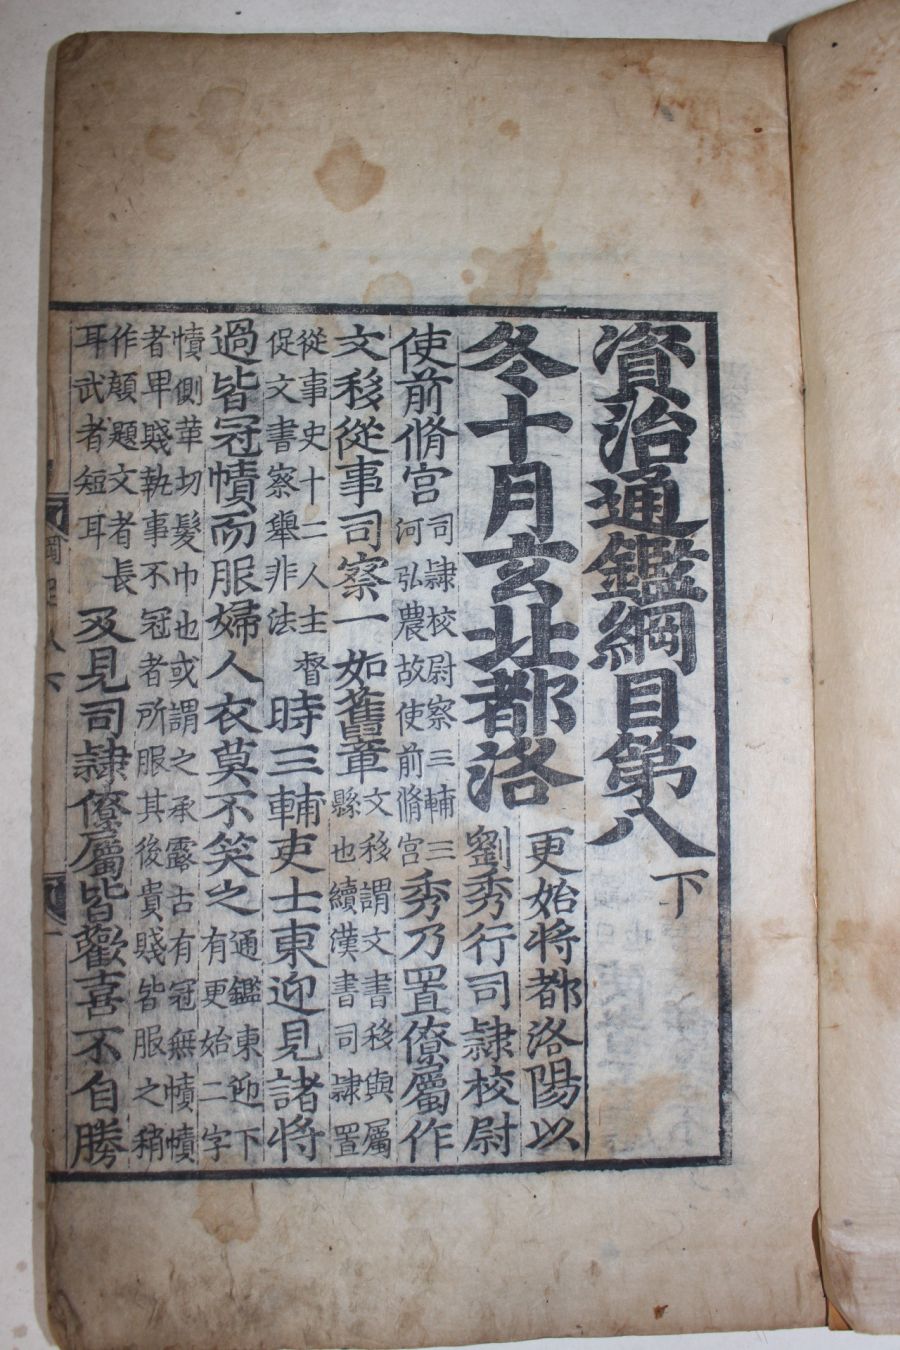 資治通鑑綱目第八下
冬十月玄北都洛
更始將都洛陽以
劉秀行司隷校尉
使前脩宮
司隷校尉察三輔三
河弘農故使前脩宮
秀乃置僚屬作
文移從事司察一如舊章
文移謂文書移與屬
縣也續漢書司隷置
從事史十二人主督
促文書察舉非法
時三輔吏士東迎見諸將
過皆冠幘而服婦人衣莫不笑之
通鑑東迎下
有更始二字
幘側革切髮巾也或謂之承露古有冠無幘幘
者卑賤執事不冠者所服其後貴賤皆服之稍
作顔題文者長
耳武者短耳
及見司隷僚屬皆歡喜不自勝